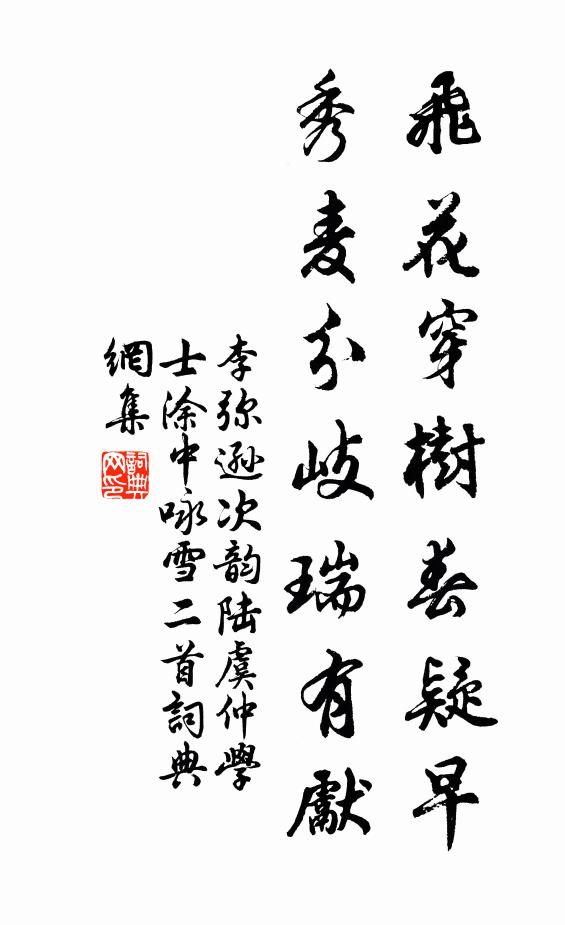 飛花穿樹春疑早
秀麦分岐瑞有獻
李弥遜次韵陆虞仲學
士涂中咏雪二首詞典
網集
詞典
网印